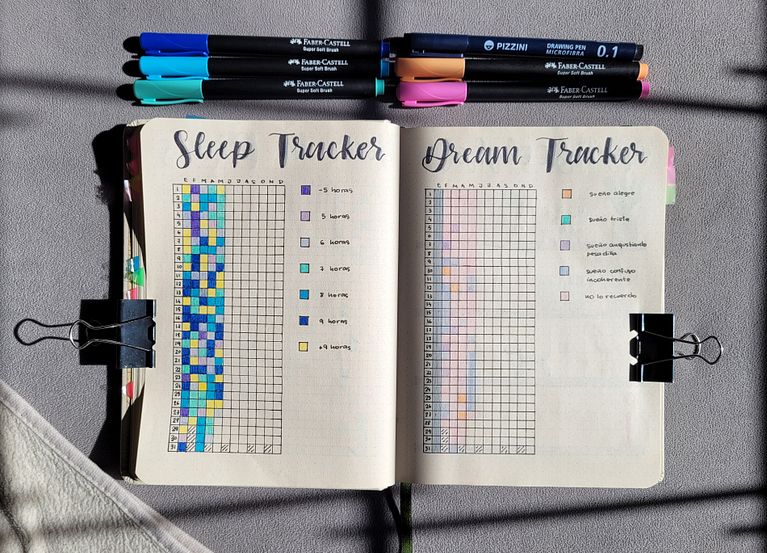 FABER-CASTELL
Super Soft Brush
FABER-CASTELL
Super Soft Brush
FABER-CASTELL
Super Soft Brush
PIZZINI
DRAWING PEN
MICROFIBRA
0.1
FABER-CASTELL
Super Soft Brush
FABER-CASTELL
Super Soft Brush
Sleep Tracker
E F M A M J J A S O N D
1
2
3
4
5
6
7
8
9
10
11
12
13
14
15
16
17
18
19
20
21
22
23
24
25
26
27
28
29
30
31
-5 horas
5 horas
6 horas
7 horas
8 horas
9 horas
+9 horas
Dream Tracker
E F M A M J J A S O N D
1
2
3
4
5
6
7
8
9
10
11
12
13
14
15
16
17
18
19
20
21
22
23
24
25
26
27
28
29
30
31
sueño alegre
sueño triste
sueño angustiando
pesadilla
sueño confuso
incoherente
no lo recuerdo